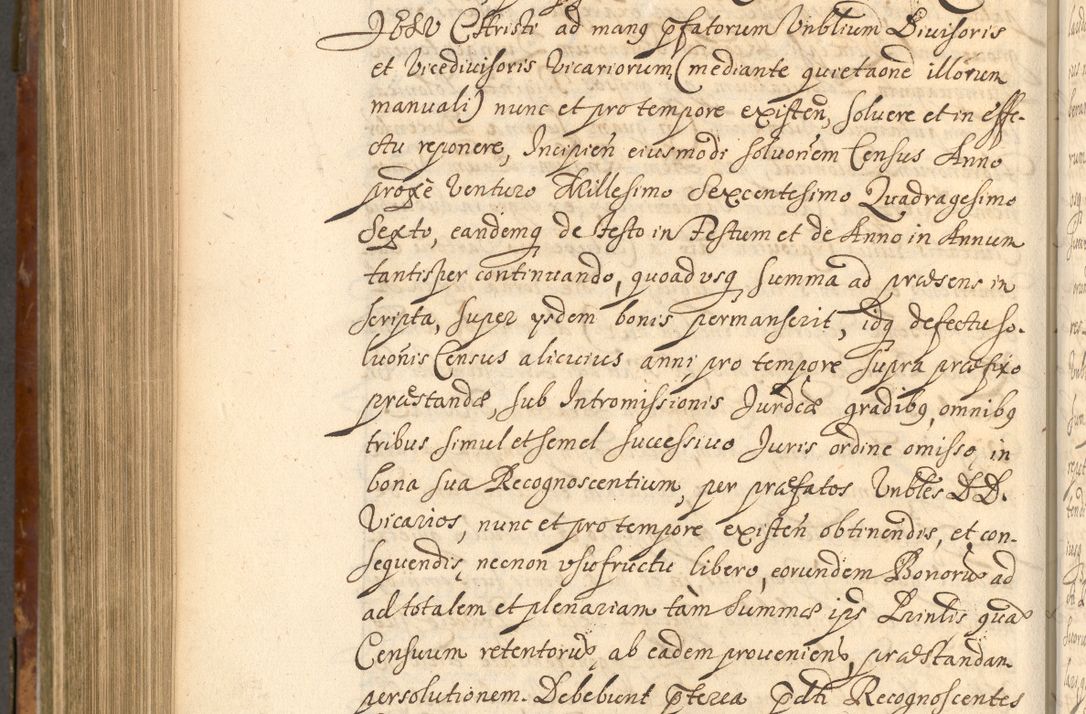 JESV Christi ad manq pfatorum Vnblium Diuisoris
et Vicediuisoris Vicariorum (mediante quietaone illorum
manuali) nunc et pro tempore existen, soluere et in effe-
ctu reponere, Incipien eiusmodi soluonem Census Anno
proxe venturo Millesimo Sexcentesimo Quadragesimo
Sexto, eandemq de Festo in Festum et de Anno in Annum
tantisper continuando, quoadusq Summa ad præsens in
scripta, super ysdem bonis permanserit, idq defectu so-
luonis Census alicuius anni pro tempore supra præfixo
præstandæ, sub Intromissionis Jurdcæ gradibq, omnibq
tribus simul et semel successiuo Juris ordine omisso, in
bona sua Recognoscentium, per præfatos Vnbles DD.
Vicarios, nunc et pro tempore existen obtinendis, et con-
sequendis, necnon vsufructu libero, eorundem Bonorum ad
ad totalem et plenariam tàm Summæ ips Prinlis quàm
Censuum retentorum, ab eadem provenien, præstandam
persolutionem. Debebunt pterea pdti Recognoscentes